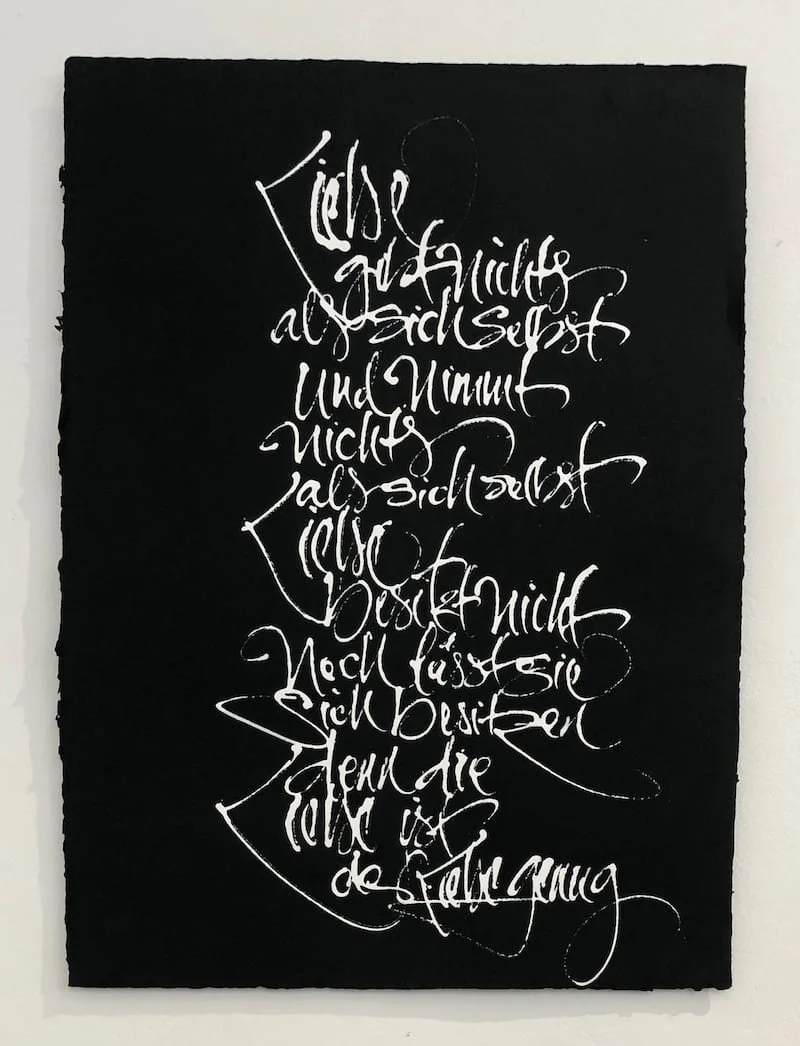 Liebe
gibt nichts
als sich selbst
Und nimmt
nichts
als sich selbst
Liebe
besitzt nicht
Noch lässt sie
Sich besitzen
denn die
Liebe ist
der Liebe genug